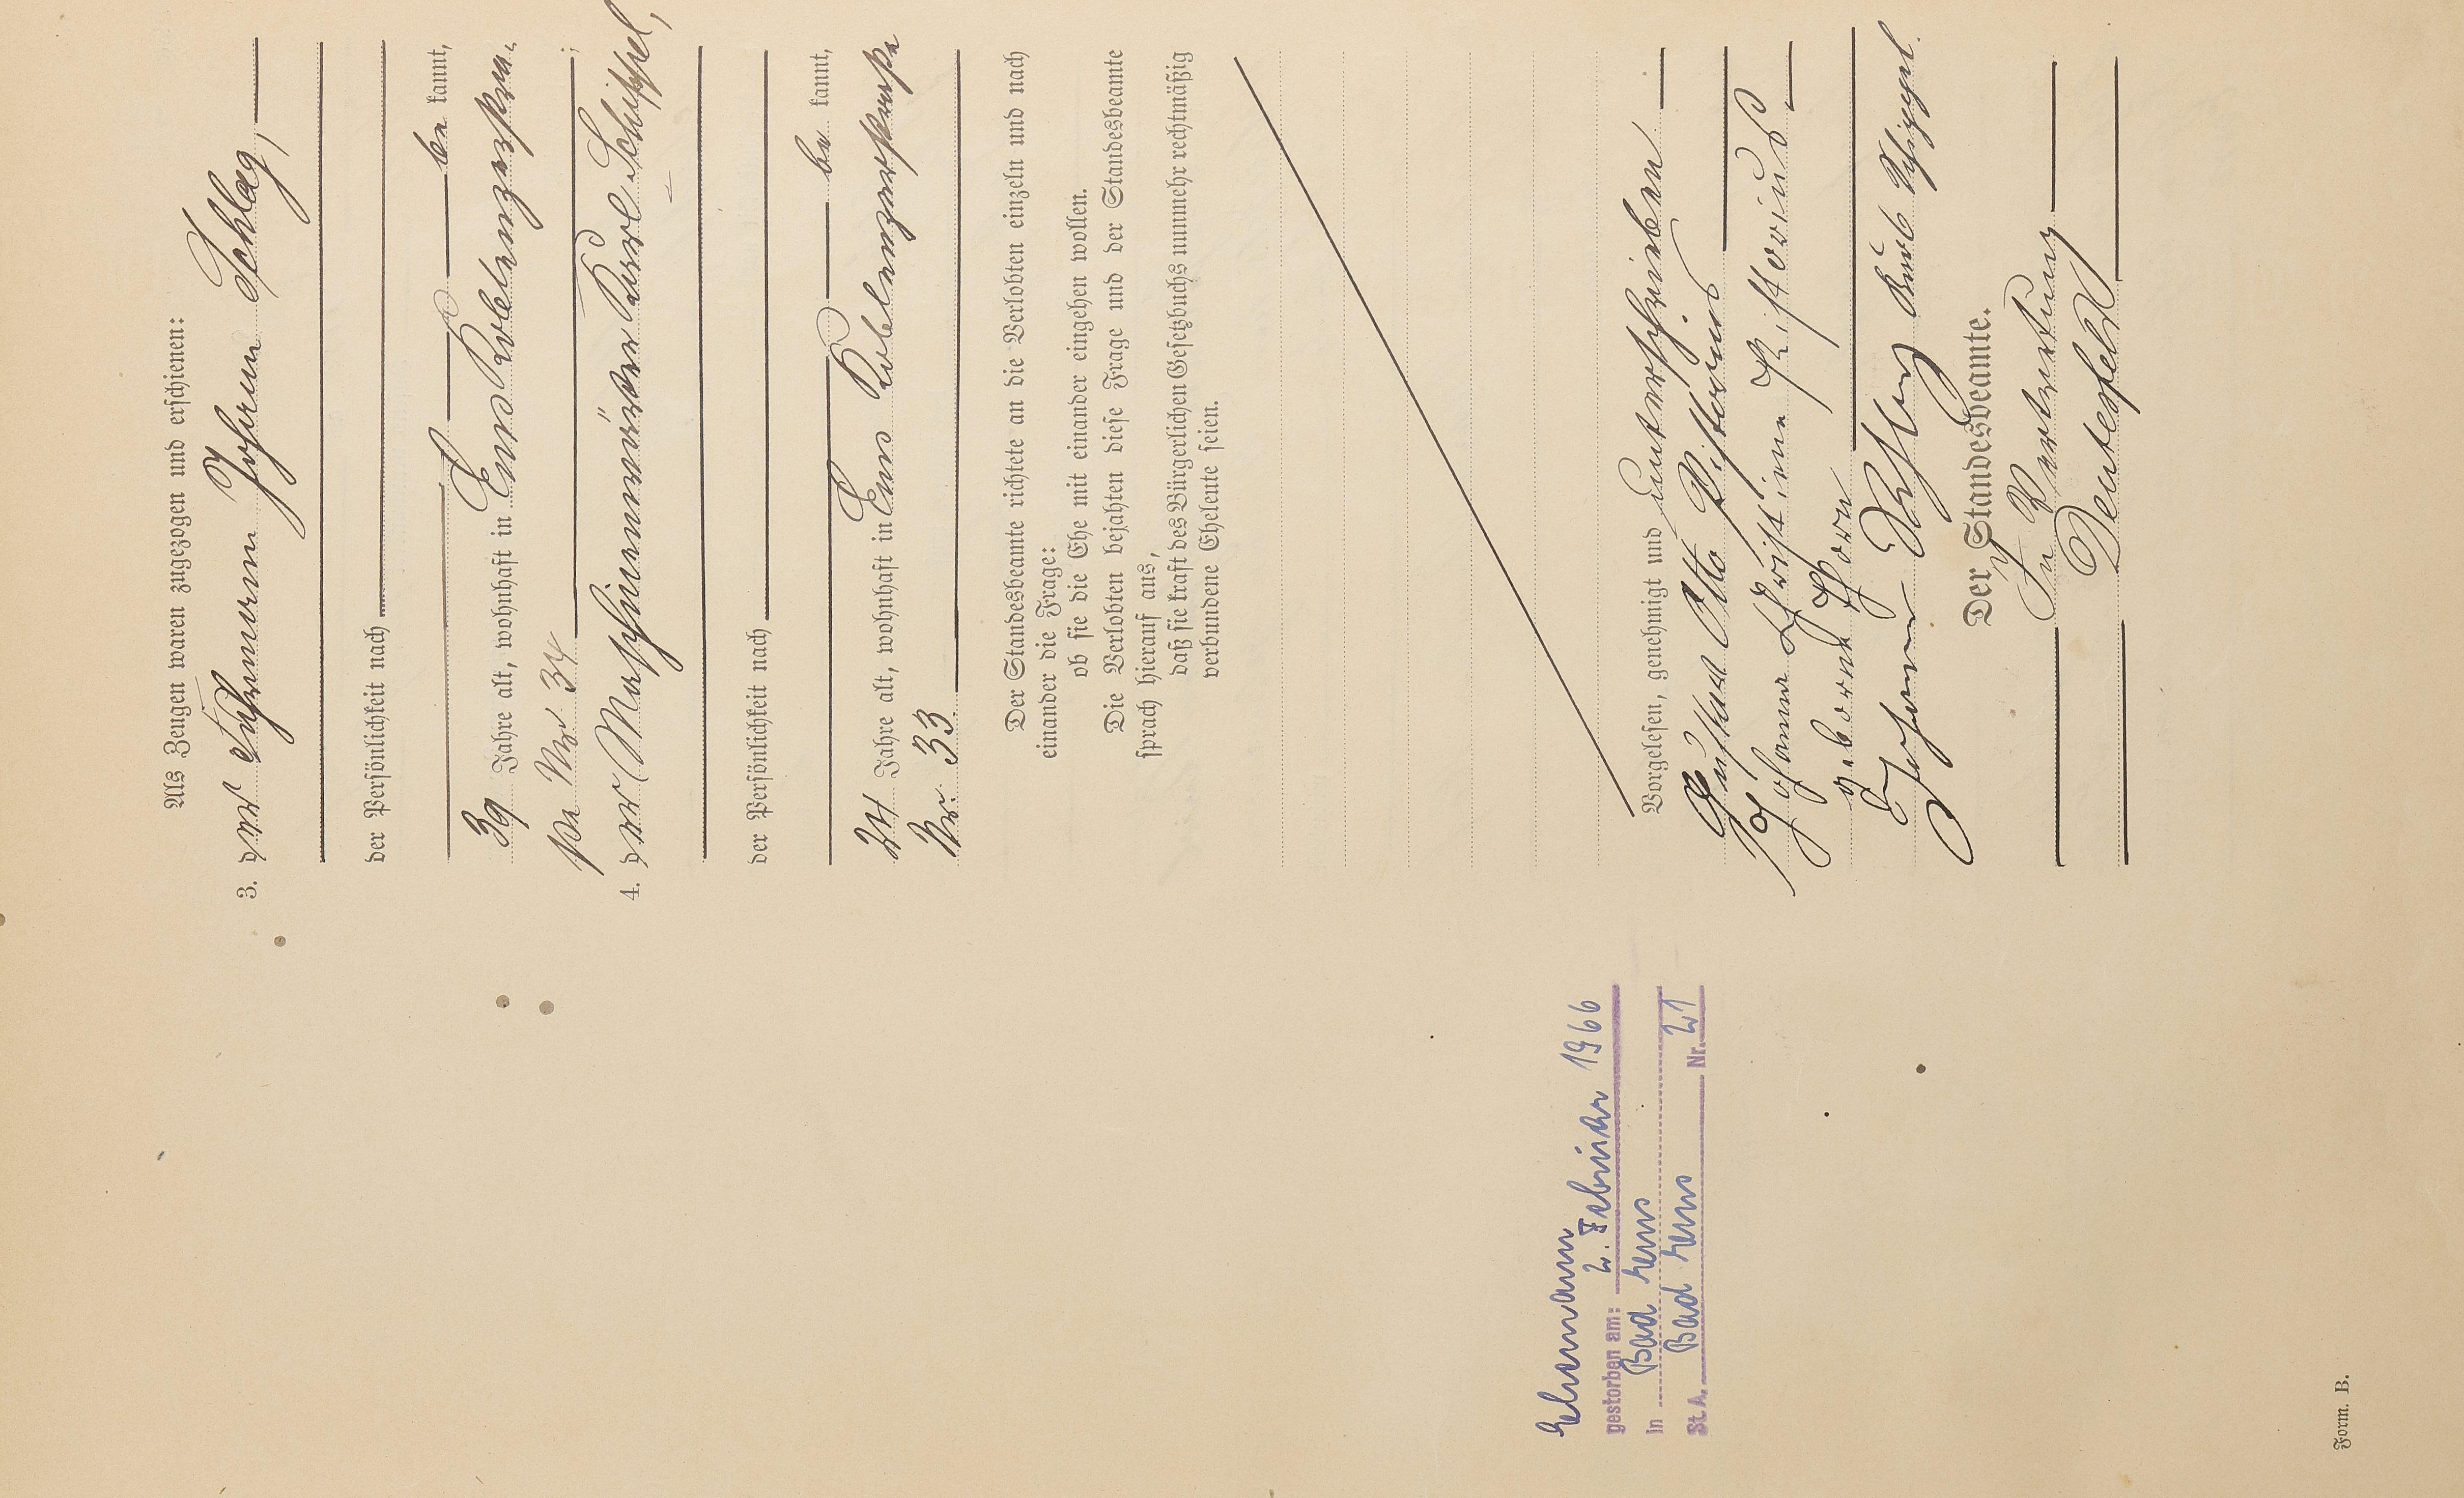 Als Zeugen waren zugezogen und erschienen:
3. der Fuhrmann Johann Schlag,
der Persönlichkeit nach
be kannt,
39 Jahre alt, wohnhaft in Ems Koblenzerstra-
ße Nr. 34;
4. der Maschinenwärter Karl Schippel,
der Persönlichkeit nach
be kannt,
24 Jahre alt, wohnhaft in Ems Koblenzerstraße
Nr. 33.
Der Standesbeamte richtete an die Verlobten einzeln und nach
einander die Frage:
ob sie die Ehe mit einander eingehen wollen.
Die Verlobten bejahten diese Frage und der Standesbeamte
sprach hierauf aus,
daß sie kraft des Bürgerlichen Gesetzbuchs nunmehr rechtmäßig
verbundene Eheleute seien.
Vorgelesen, genehmigt und unterschrieben
Gustav Otto Pistorius
Johanna Christiene Pistorius
geborene Thorn
Johann Schlag Karl Schippel.
Der Standesbeamte.
In Vertretung
Deutesfeld
Ehemann
gestorben am: 2. Februar 1966
in Bad Ems
St. A. Bad Ems Nr. 21
Form. B.